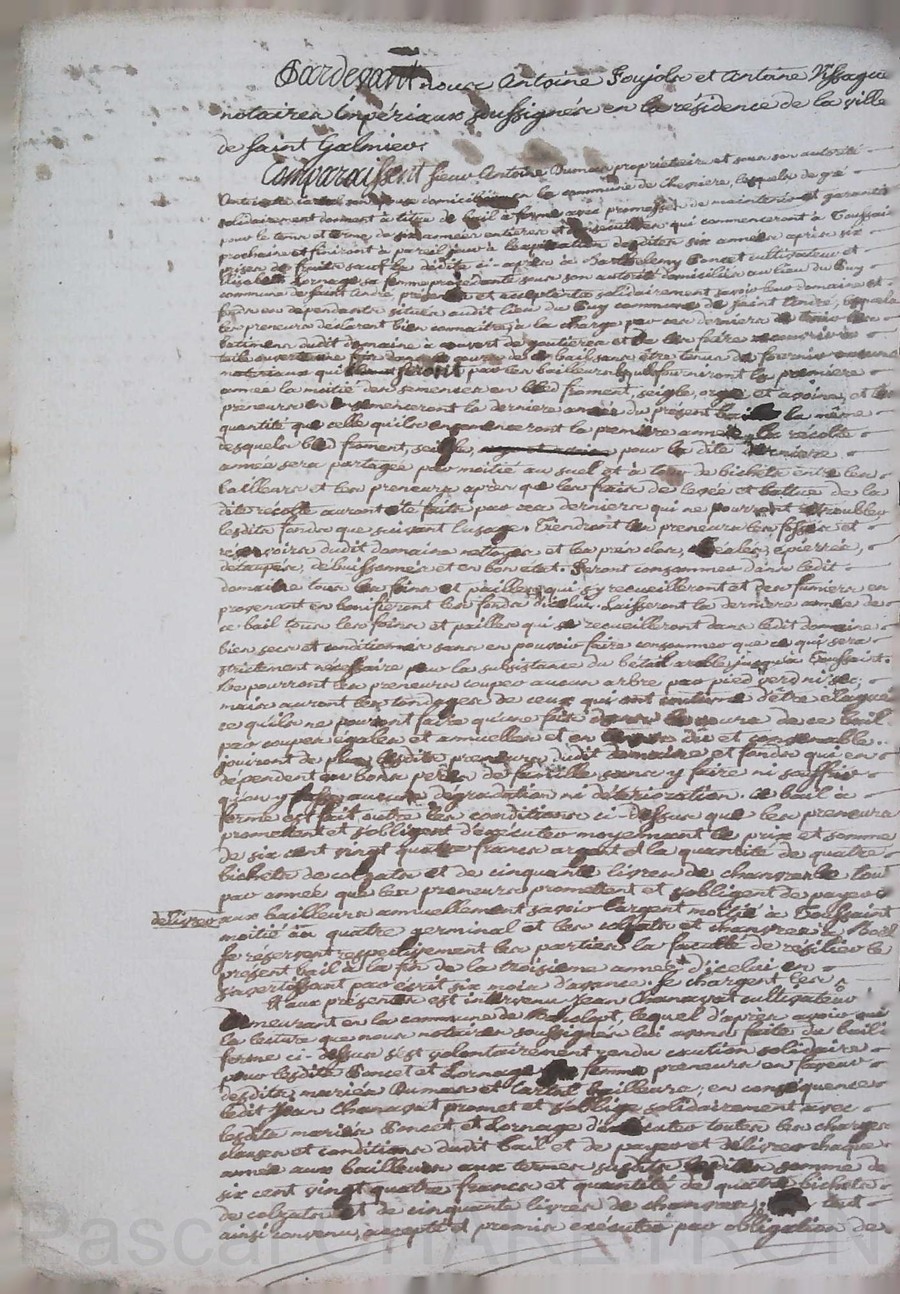 Pardevant nous Antoine Poujols et Antoine Vissague
notaires impériaux soussignés en la résidence de la ville
de Saint Galmier,
Comparaissent sieur Antoine Dumas proprietaire et sous son autorité
son épouse domiciliés en la commune de Cheniere, lesquels de gré
solidairement donnent à titre de bail à ferme avec promesse de maintenir et garantir
pour le tems et terme de six années entieres et consécutives qui commenceront à Toussaint
prochaine et finiront à pareil jour à l'expiration desdites six années après six
prises de fruits sauf la dédite ci-après à Barthelemy Poncet cultivateur et
Elisabeth Lornage sa femme procédante sous son autorité domiciliés au lieu du Puy
commune de Saint André, présents et acceptants solidairement savoir leur domaine et
fonds en dépendants situés audit lieu du Puy commune de Saint André, lesquels
les preneurs déclarent bien connaitre, à la charge par ces derniers de tenir les
batimens dudit domaine à couvert de goutieres et de les faire
tuile une fois dans le cours de ce bail sans être tenus de fournir aucuns
materiaux qui seront par les bailleurs fourniront la premiere
année la moitié des semences en bled froment, seigle, orge et avoine, et les
preneurs en ensemenceront la derniere année du présent bail la même
quantité que celle qu'ils ensemenceront la première année, la récolte
desquels bled froment, seigle, pour la dite derniere
année sera partagée par moitié au suel et à tour de bichets entre les
bailleurs et les preneurs après que les frais de levée et battue de la
dite récolte auront été faits par ces derniers qui ne pourront troubler
lesdits fonds que suivant l'usage. Tiendront les preneurs les fossés et
reservoirs dudit domaine netoyés et les prés clos, égalés, épierrés,
détaupés, débuissonnés et en bon etat. Seront consommés dans ledit
domaine tous les foins et pailles qui s'y recueilleront et des fumiers en
provenant en bonifieront les fonds d'icelui. Laisseront la derniere année de
ce bail tous les foins et pailles qui se recueilleront dans ledit domaine
bien secs et conditionnés sans en pouvoir faire consommer que ce qui sera
strictement nécessaire pour la subsistance du bétail arable jusqu'à Toussaint.
Ne pourront les preneurs couper aucun arbre par pied verd ni sec,
mais auront les tondages de ceux qui ont coutume d'être élagués
ce qu'ils ne pourront faire qu'une fois dans le cours de ce bail
par coupes égales et annuelles et en tems dû et convenable.
jouiront de plus lesdits preneurs dudit domaine et fonds qui en
dépendent en bons peres de famille sans y faire ni souffrir
qu'on y fasse aucune dégradation ni détérioration. Ce bail à
ferme est fait outre les conditions ci-dessus que les preneurs
promettent et s'obligent d'exécuter moyennant le prix et somme
de six cent vingt quatre francs argent et la quantité de quatre
bichets de colzats et de cinquante livres de chanvres le tout
par année que les preneurs promettent et s'obligent de payer
de livrer aux bailleurs annuellement savoir l'argent moitié à Toussaint
moitié au quatre germinal et les colzats et chanvres à Noël
se réservent respectivement les parties la faculté de résilier le
présent bail à la fin de la troisieme année d'icelui en
s'avertissant par écrit six mois d'avance. Se chargent les
Et aux présentes est intervenu Jean Chanavat cultivateur
demeurant en la commune de, lequel d'après avoir ouï
la lecture que nous notaires soussignés lui avons faite du bail à
ferme ci-dessus s'est volontairement rendu caution solidaire
pour lesdits Poncet et Lornage femme preneurs en faveur
desdits mariés Dumas et bailleurs, en conséquence
ledit Jean Chanavat promet et s'oblige solidairement avec
lesdits mariés Poncet et Lornage d'exécuter toutes les charges
clauses et conditions dudit bail et de payer et délivrer chaque
année aux bailleurs aux termes susdits lesdites somme de
six cent vingt quatre francs et quantité de quatre bichets
de colzats et de cinquante livres de chanvres, tout
ainsi convenu, accepté et promis exécuter par obligation de
Pascal CHARETRON